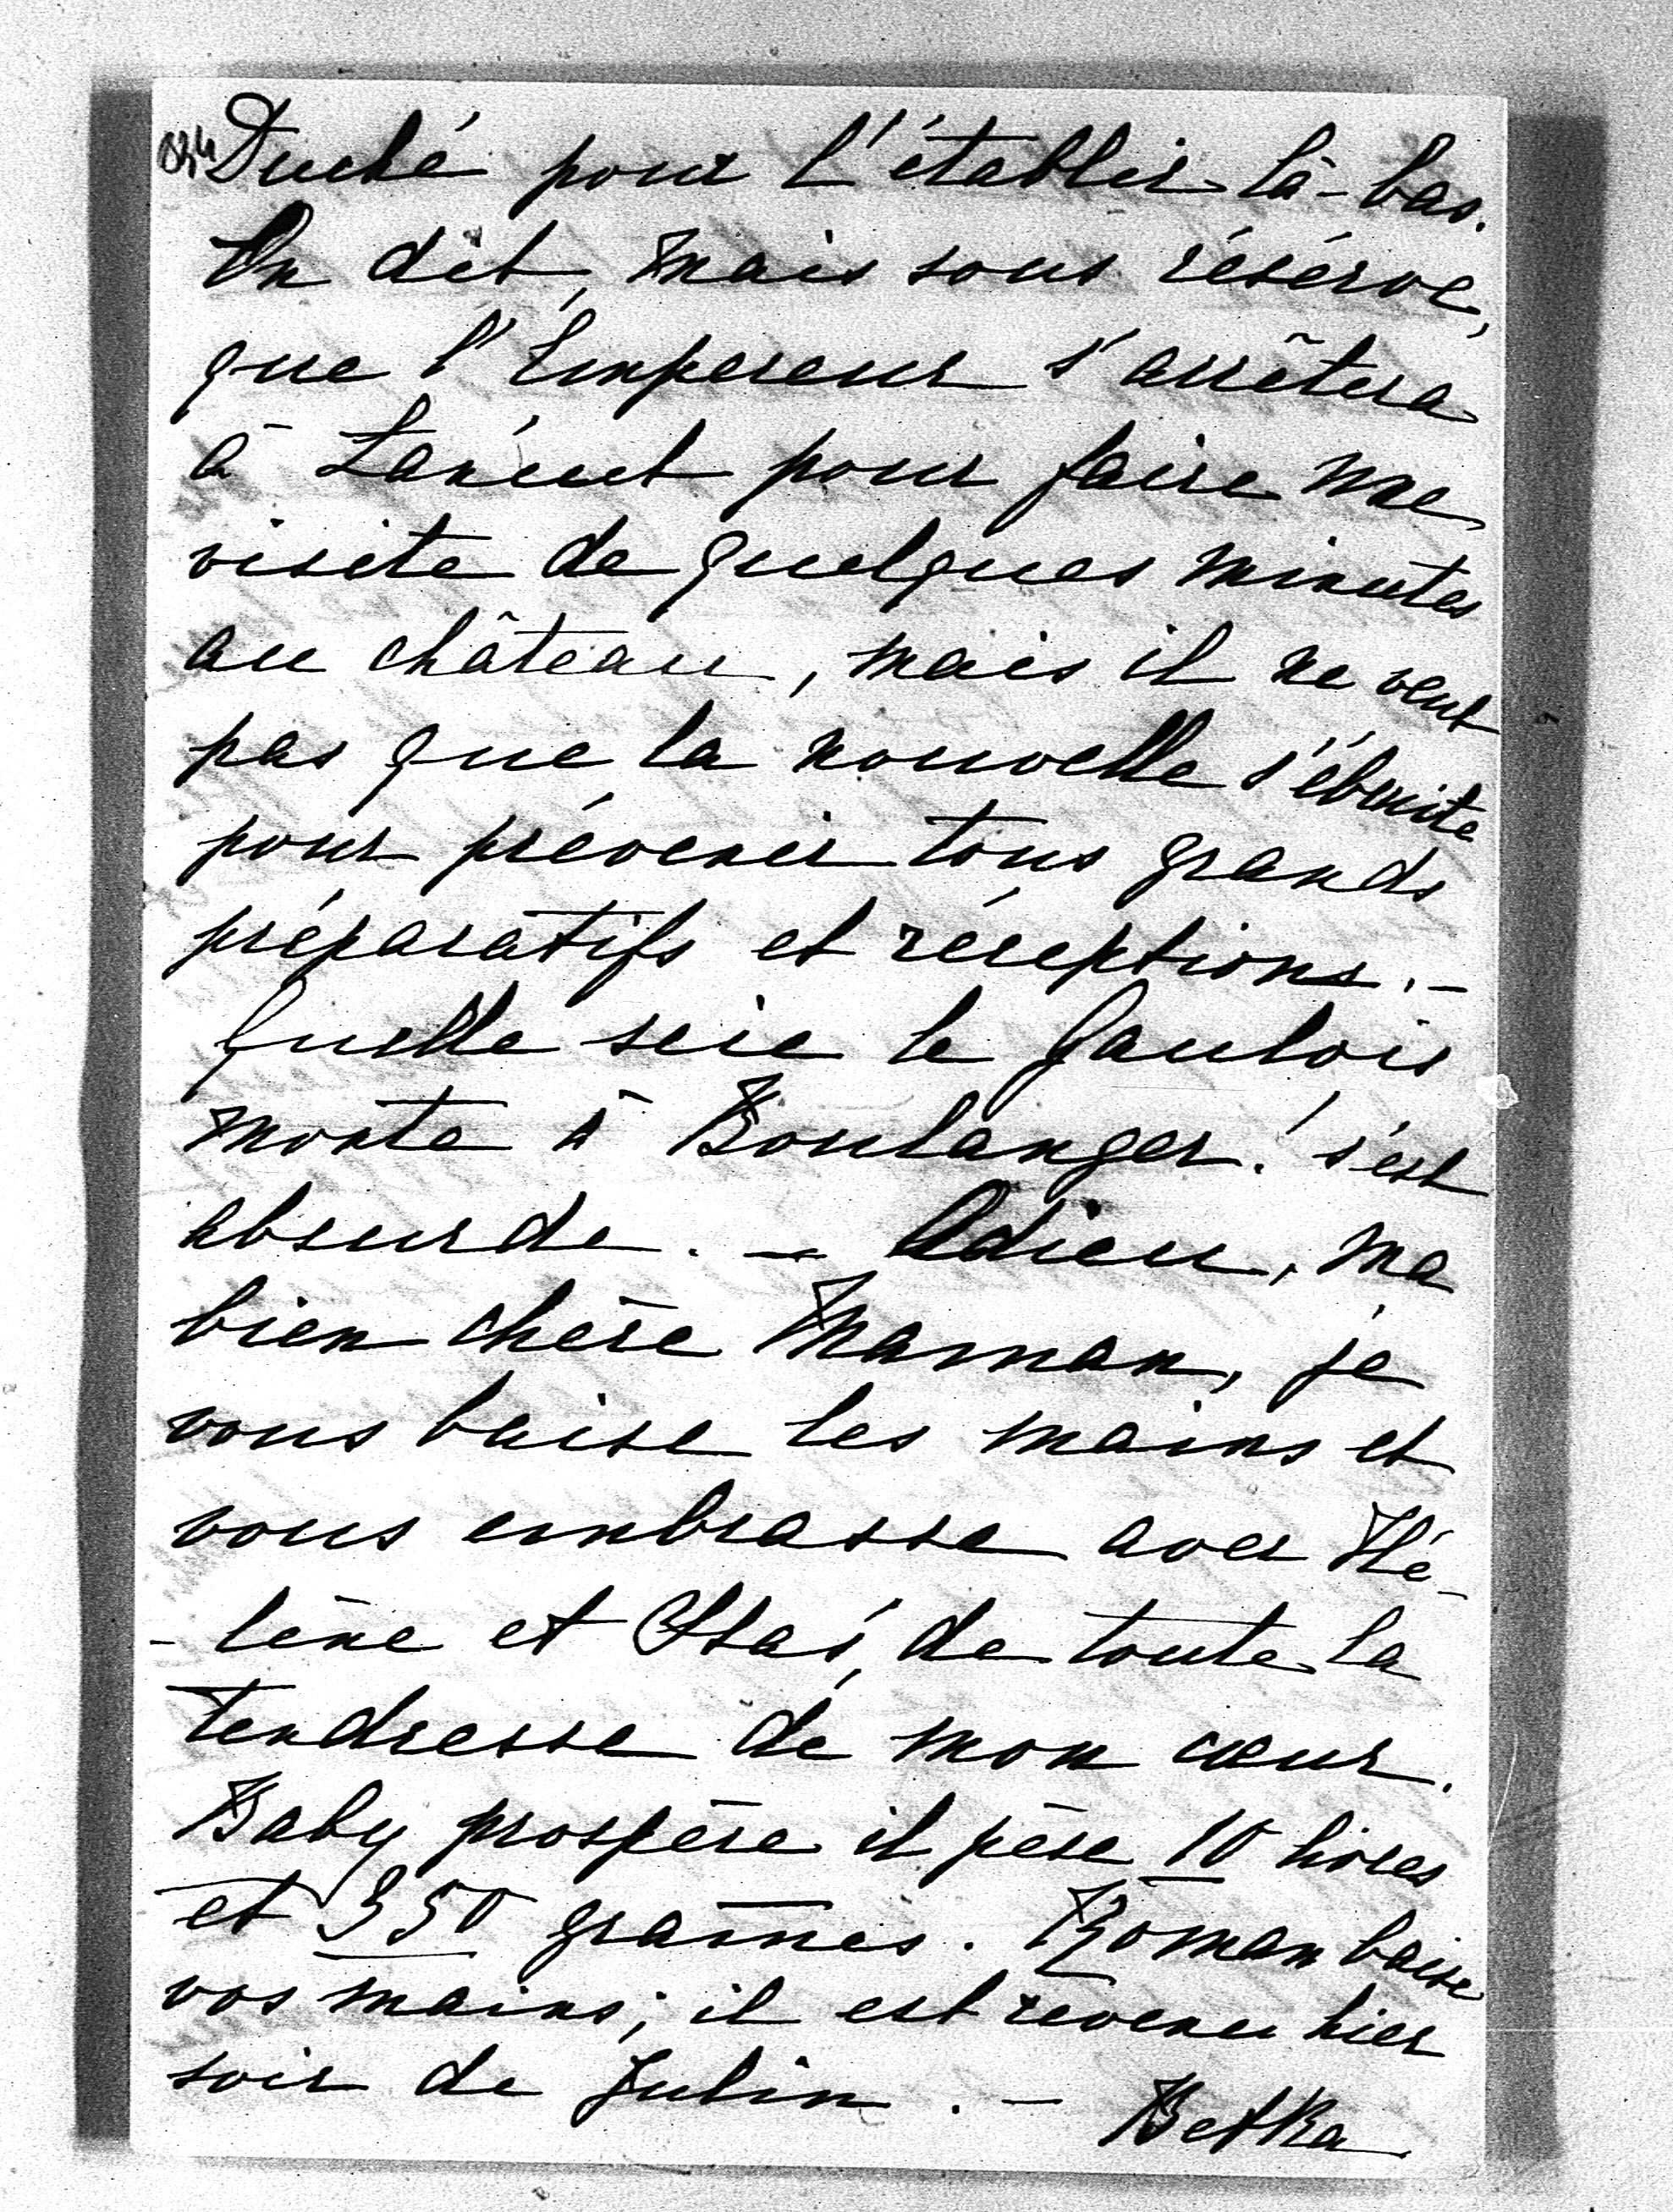 834
Duché pour l'établir là-bas.
On dit, mais sous réserve,
que l'Empereur s'arrêtera
à Łańcut pour faire une
visite de quelques minutes
au château, mais il ne veut
pas que la nouvelle s'ébruite
pour prévenir tous grands
préparatifs et réceptions. –
Quelle scie le Gaulois
monte à Boulanger! c'est
absurde. – Adieu, ma
bien chère Maman, je
vous baise les mains et
vous embrasse avec Hé-
-lène et Staś, de toute la
tendresse de mon cœur.
Baby prospère il pèse 10 livres
et 350 grames. Roman baise
vos mains; il est revenu hier
soir de Julin. – Betka